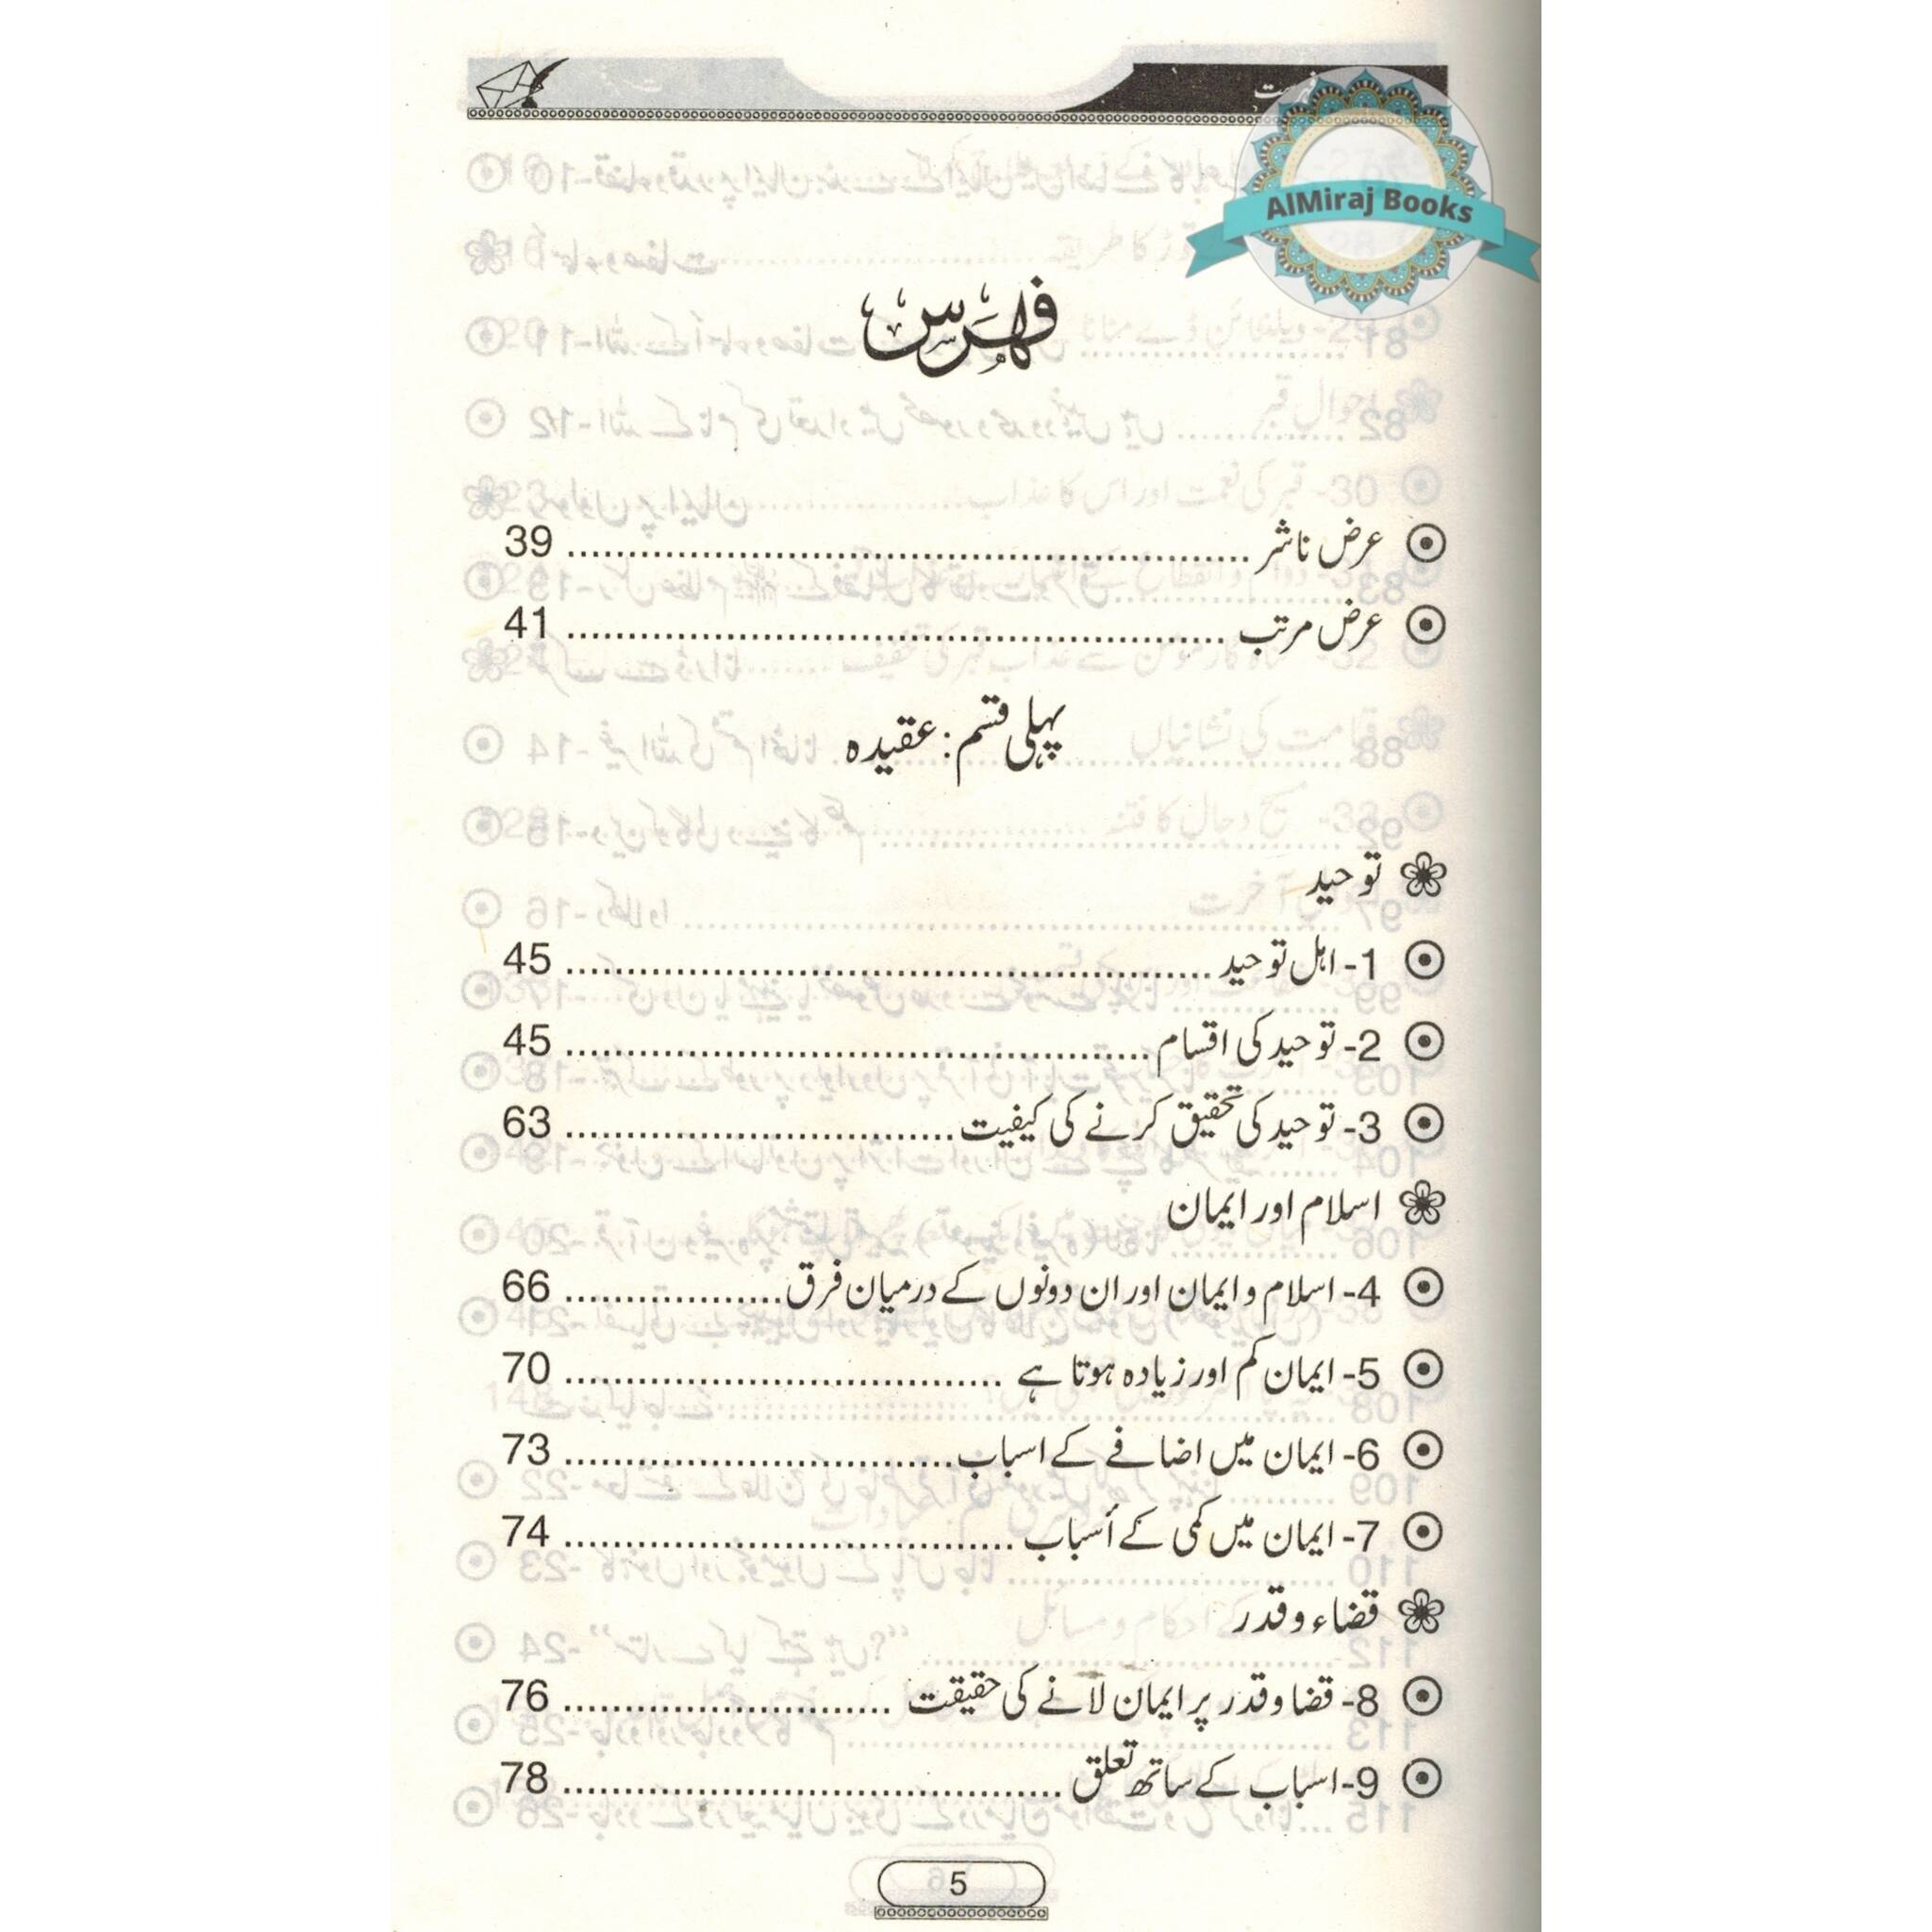 فہرست
AlMiraj Books
فہرس
عرض ناشر ........................................ 39
عرض مرتب ........................................ 41
پہلی قسم: عقیدہ
توحید
1- اہل توحید ........................................ 45
2- توحید کی اقسام ........................................ 45
3- توحید کی تحقیق کرنے کی کیفیت ........................................ 63
اسلام اور ایمان
4- اسلام و ایمان اور ان دونوں کے درمیان فرق ........................................ 66
5- ایمان کم اور زیادہ ہوتا ہے ........................................ 70
6- ایمان میں اضافے کے اسباب ........................................ 73
7- ایمان میں کمی کے أسباب ........................................ 74
قضاء و قدر
8- قضا و قدر پر ایمان لانے کی حقیقت ........................................ 76
9- اسباب کے ساتھ تعلق ........................................ 78
5